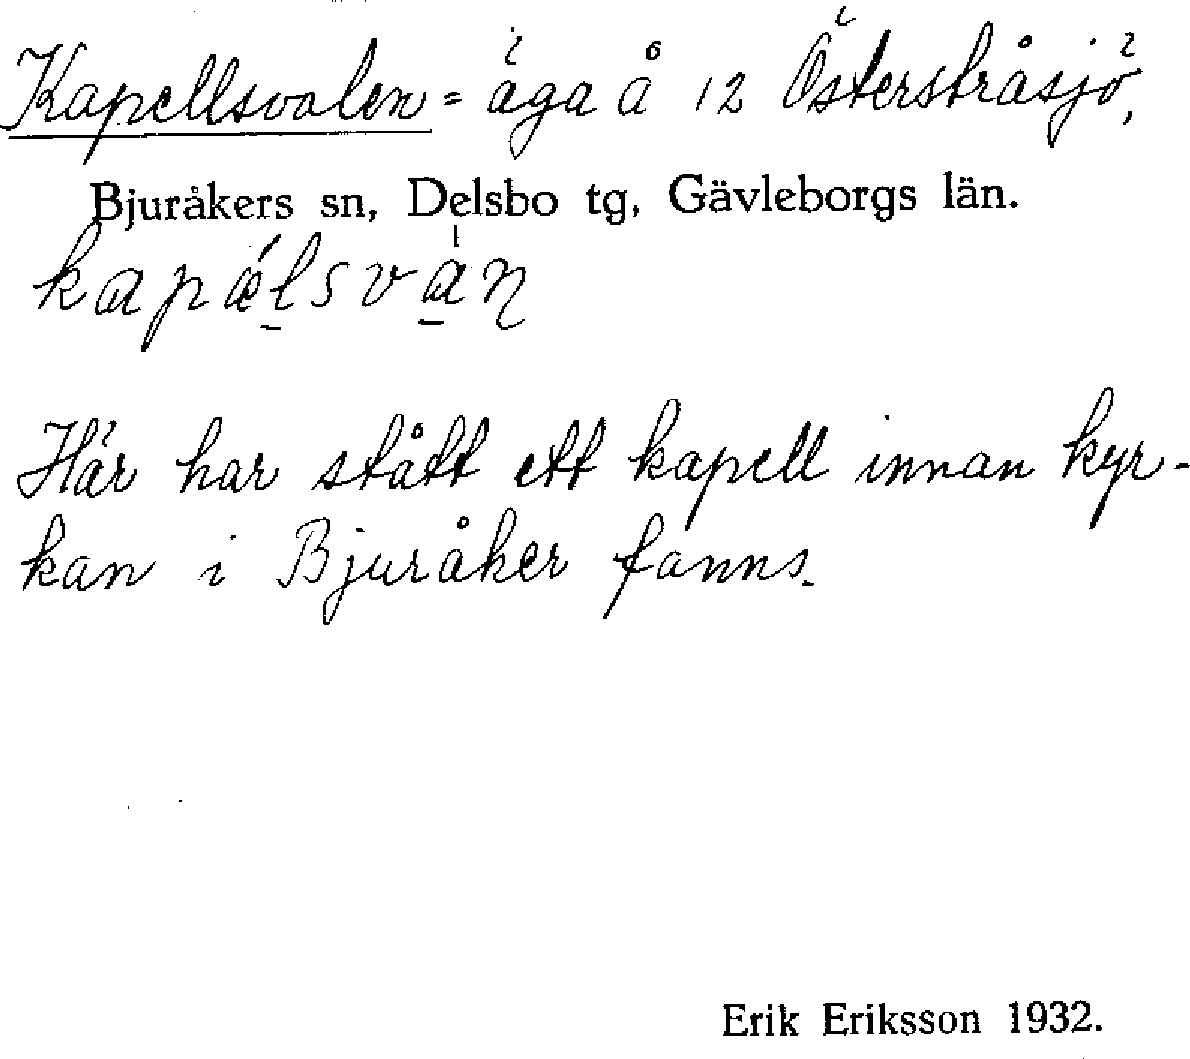 Kapellsvalen = äga å 12 Österstråsjö,
Bjuråkers sn, Delsbo tg, Gävleborgs län.
Här har stått ett kapell innan kyr-
kan i Bjuråker fanns.
Erik Eriksson 1932.